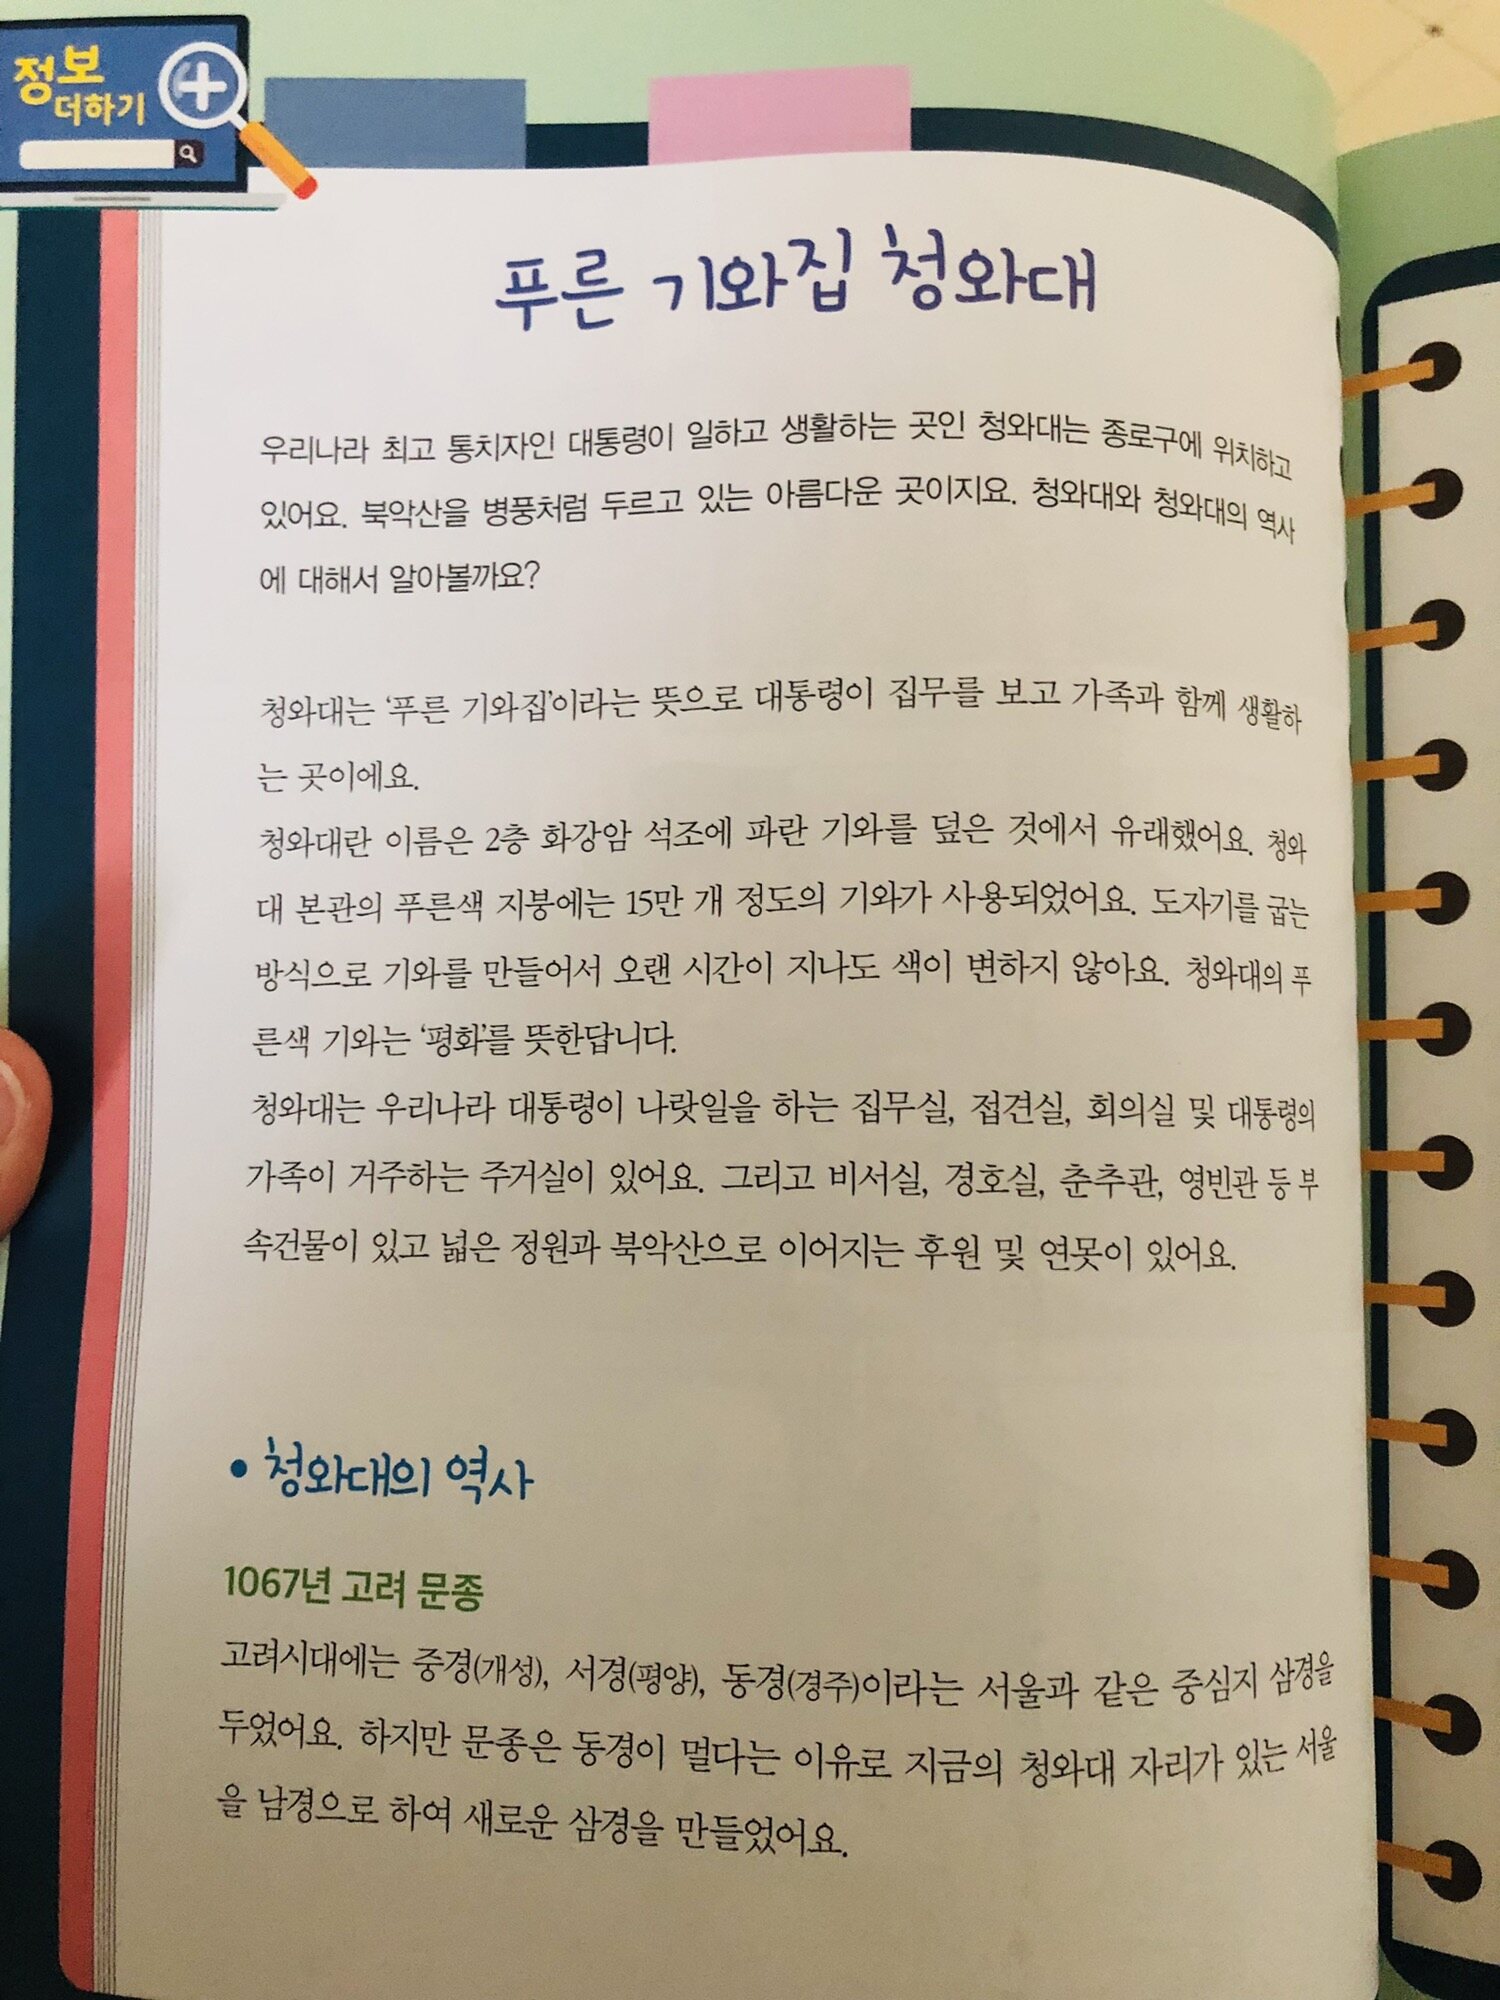 정보
더하기
푸른 기와집 청와대
우리나라 최고 통치자인 대통령이 일하고 생활하는 곳인 청와대는 종로구에 위치하고
있어요. 북악산을 병풍처럼 두르고 있는 아름다운 곳이지요. 청와대와 청와대의 역사
에 대해서 알아볼까요?
청와대는 ‘푸른 기와집’이라는 뜻으로 대통령이 집무를 보고 가족과 함께 생활하
는 곳이에요.
청와대란 이름은 2층 화강암 석조에 파란 기와를 덮은 것에서 유래했어요. 청와
대 본관의 푸른색 지붕에는 15만 개 정도의 기와가 사용되었어요. 도자기를 굽는
방식으로 기와를 만들어서 오랜 시간이 지나도 색이 변하지 않아요. 청와대의 푸
른색 기와는 ‘평화’를 뜻한답니다.
청와대는 우리나라 대통령이 나랏일을 하는 집무실, 접견실, 회의실 및 대통령의
가족이 거주하는 주거실이 있어요. 그리고 비서실, 경호실, 춘추관, 영빈관 등 부
속건물이 있고 넓은 정원과 북악산으로 이어지는 후원 및 연못이 있어요.
• 청와대의 역사
1067년 고려 문종
고려시대에는 중경(개성), 서경(평양), 동경(경주)이라는 서울과 같은 중심지 삼경을
두었어요. 하지만 문종은 동경이 멀다는 이유로 지금의 청와대 자리가 있는 서울
을 남경으로 하여 새로운 삼경을 만들었어요.